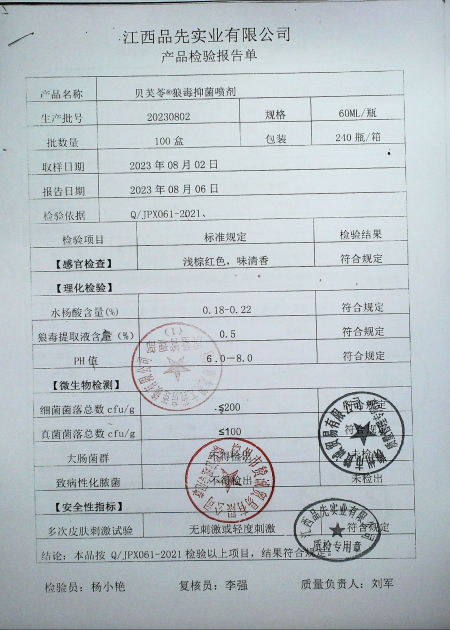 江西品先实业有限公司
产品检验报告单
产品名称 贝芙苓®狼毒抑菌喷剂
生产批号 20230802 规格 60ML/瓶
批数量 100盒 包装 240瓶/箱
取样日期 2023年08月02日
报告日期 2023年08月06日
检验依据 Q/JPX061-2021、
检验项目 标准规定 检验结果
【感官检查】 浅棕红色，味清香 符合规定
【理化检验】
水杨酸含量(%) 0.18-0.22 符合规定
狼毒提取液含量(%) 0.5 符合规定
PH值 6.0—8.0 符合规定
【微生物检测】
细菌菌落总数cfu/g ≤200 符合规定
真菌菌落总数cfu/g ≤100 符合
大肠菌群 不得检出 未检出
致病性化脓菌 不得检出 未检出
【安全性指标】
多次皮肤刺激试验 无刺激或轻度刺激 符合规定
江西品先实业有限公司
质检专用章
结论：本品按 Q/JPX061-2021检验以上项目，结果符合规定。
检验员：杨小艳 复核员：李强 质量负责人：刘军